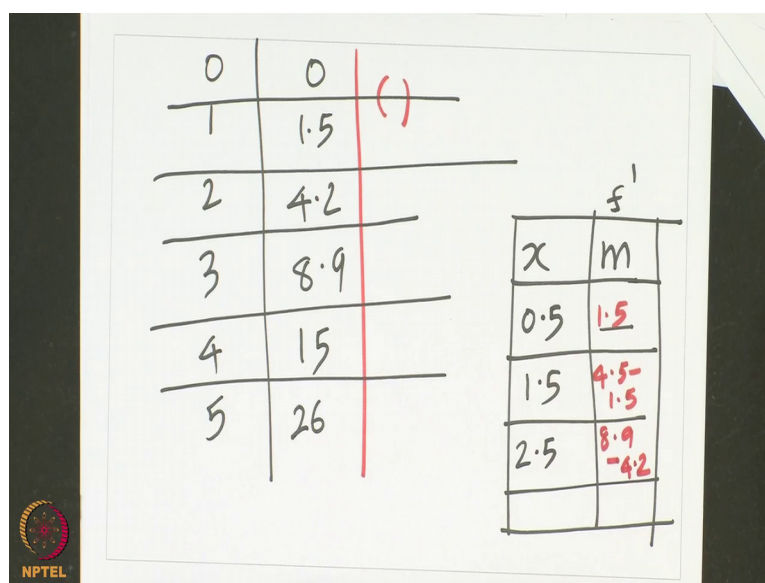 0 0 ( )
1 1.5
2 4.2
3 8.9
4 15
5 26
f'
x m
0.5 1.5
1.5 4.5-
1.5
2.5 8.9
-4.2
NPTEL